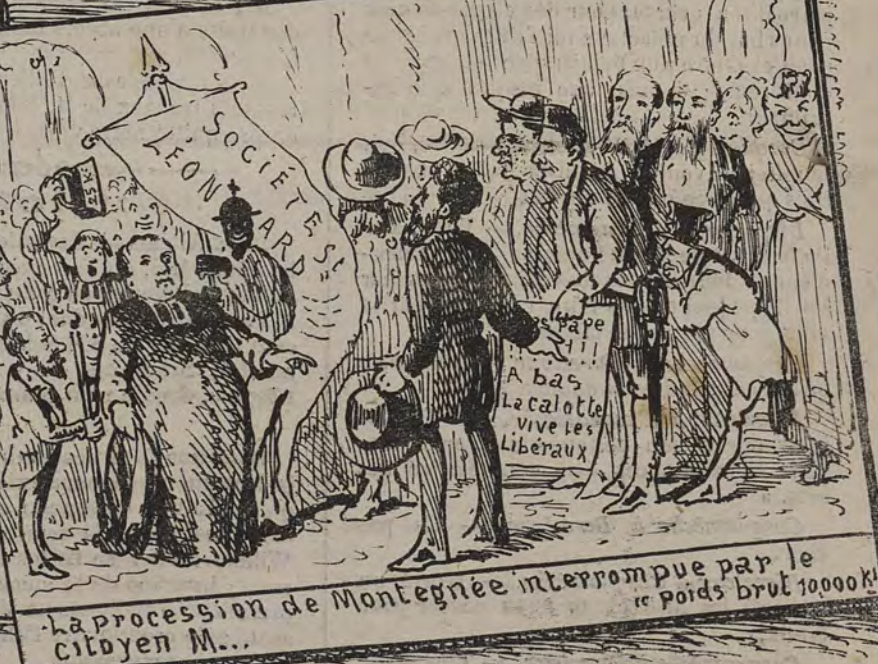 25 K.
SOCIÉTÉ ST
LÉONARD
Pape
!!!
A bas
La calotte
vive les
Libéraux
La procession de Montegnée interrompue par le
citoyen M... "poids brut 10,000 Ks